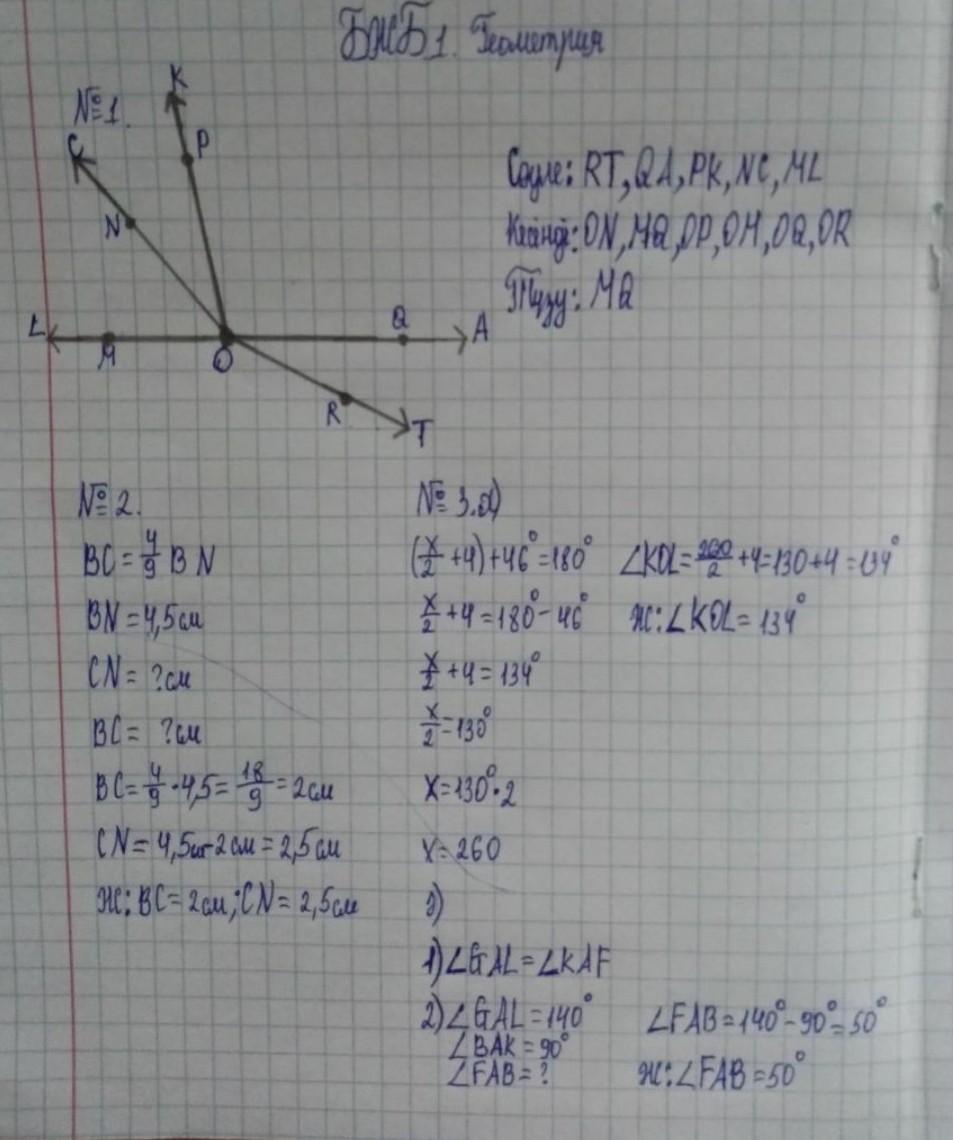 БЖБ1. Геометрия
№1.
K
P
C
N
L
M
O
Q
A
R
T
Сәуле: RT, QA, PK, NC, ML
Кесінді: ON, MQ, OP, OM, OQ, OR
Түзу: MQ
№ 2.
BC = 4/9 BN
BN = 4,5 см
CN = ? см
BC = ? см
BC = 4/9 · 4,5 = 18/9 = 2 см
CN = 4,5 см - 2 см = 2,5 см
Ж: BC = 2 см; CN = 2,5 см
№ 3. а)
(x/2 + 4) + 46° = 180°
x/2 + 4 = 180° - 46°
x/2 + 4 = 134°
x/2 = 130°
x = 130° · 2
x = 260
∠KOL = 260/2 + 4 = 130 + 4 = 134°
Ж: ∠KOL = 134°
ә)
1) ∠GAL = ∠KAF
2) ∠GAL = 140°
∠BAK = 90°
∠FAB = ?
∠FAB = 140° - 90° = 50°
Ж: ∠FAB = 50°